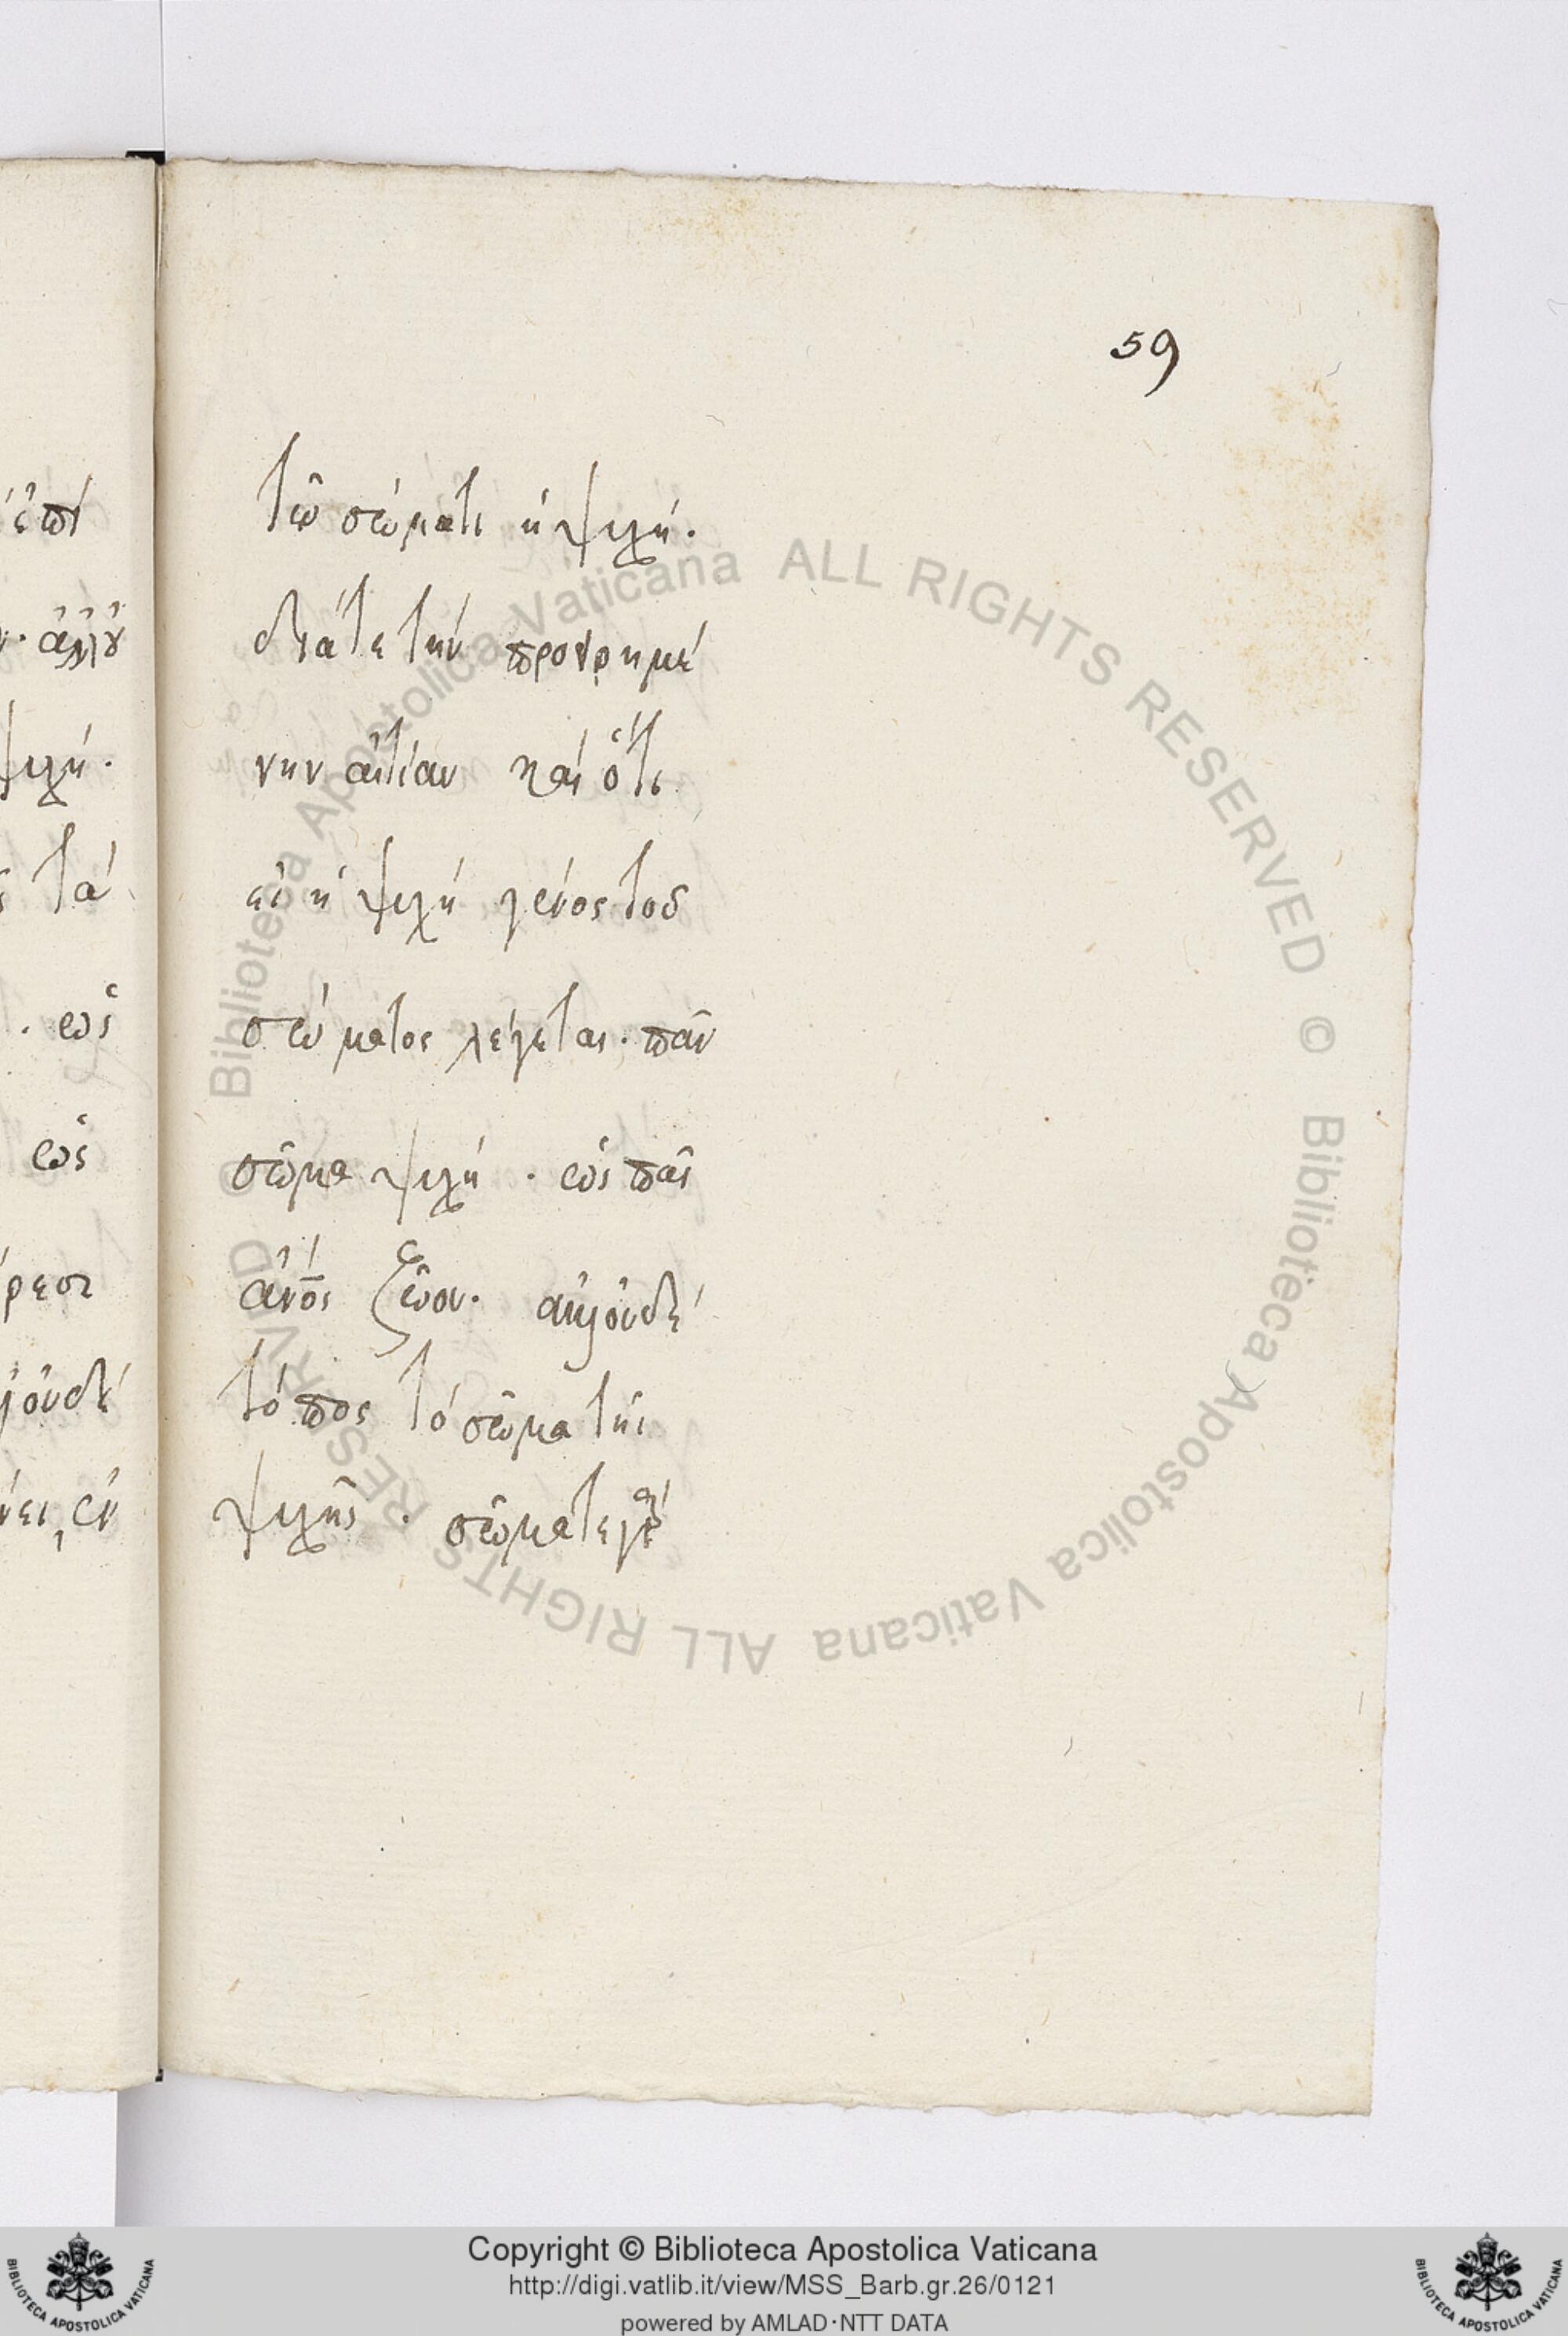 59
τῶ σώματι ἡ ψυχή.
διάτε τὴν προειρημέ
νην αἰτίαν καὶ ὅτι
εἰ ἡ ψυχὴ γένος τοῦ
σώματος λέγεται. πᾶν
σῶμα ψυχή. ὡς πᾶς
ἄνος ζῶον. ἀλλ' οὐδὲ
τόπος τὸ σῶμα τῆς
ψυχῆς. σῶμά τε γὰρ
ἐπὶ
ἀλλ' οὐ
ψυχή.
τὰ
. ὡς
ὡς
ρεσι
οὐδὲ
ἐν
Biblioteca Apostolica Vaticana ALL RIGHTS RESERVED © Biblioteca Apostolica Vaticana ALL RIGHTS RESERVED ©
BIBLIOTECA APOSTOLICA VATICANA
Copyright © Biblioteca Apostolica Vaticana
http://digi.vatlib.it/view/MSS_Barb.gr.26/0121
powered by AMLAD·NTT DATA
BIBLIOTECA APOSTOLICA VATICANA